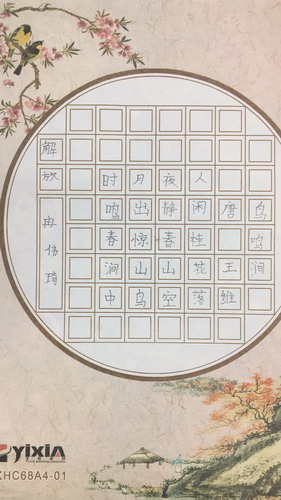 鸟鸣涧
唐 王维
人闲桂花落
夜静春山空
月出惊山鸟
时鸣春涧中
解放
冉伟琦
yixin
XHC68A4-01